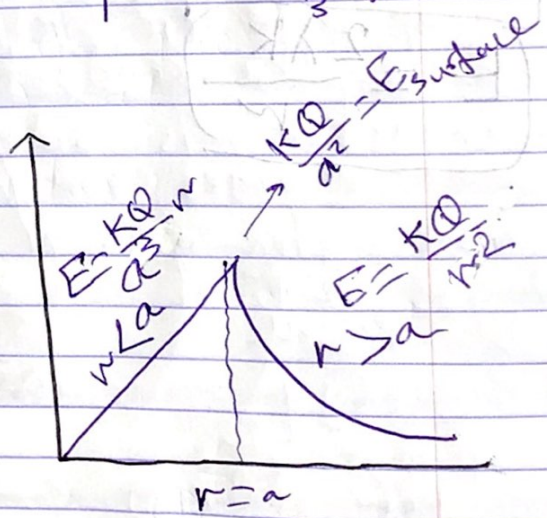 3
KQ/a² = Esurface
E = KQ/a³ r
r < a
E = KQ/r²
r > a
r = a